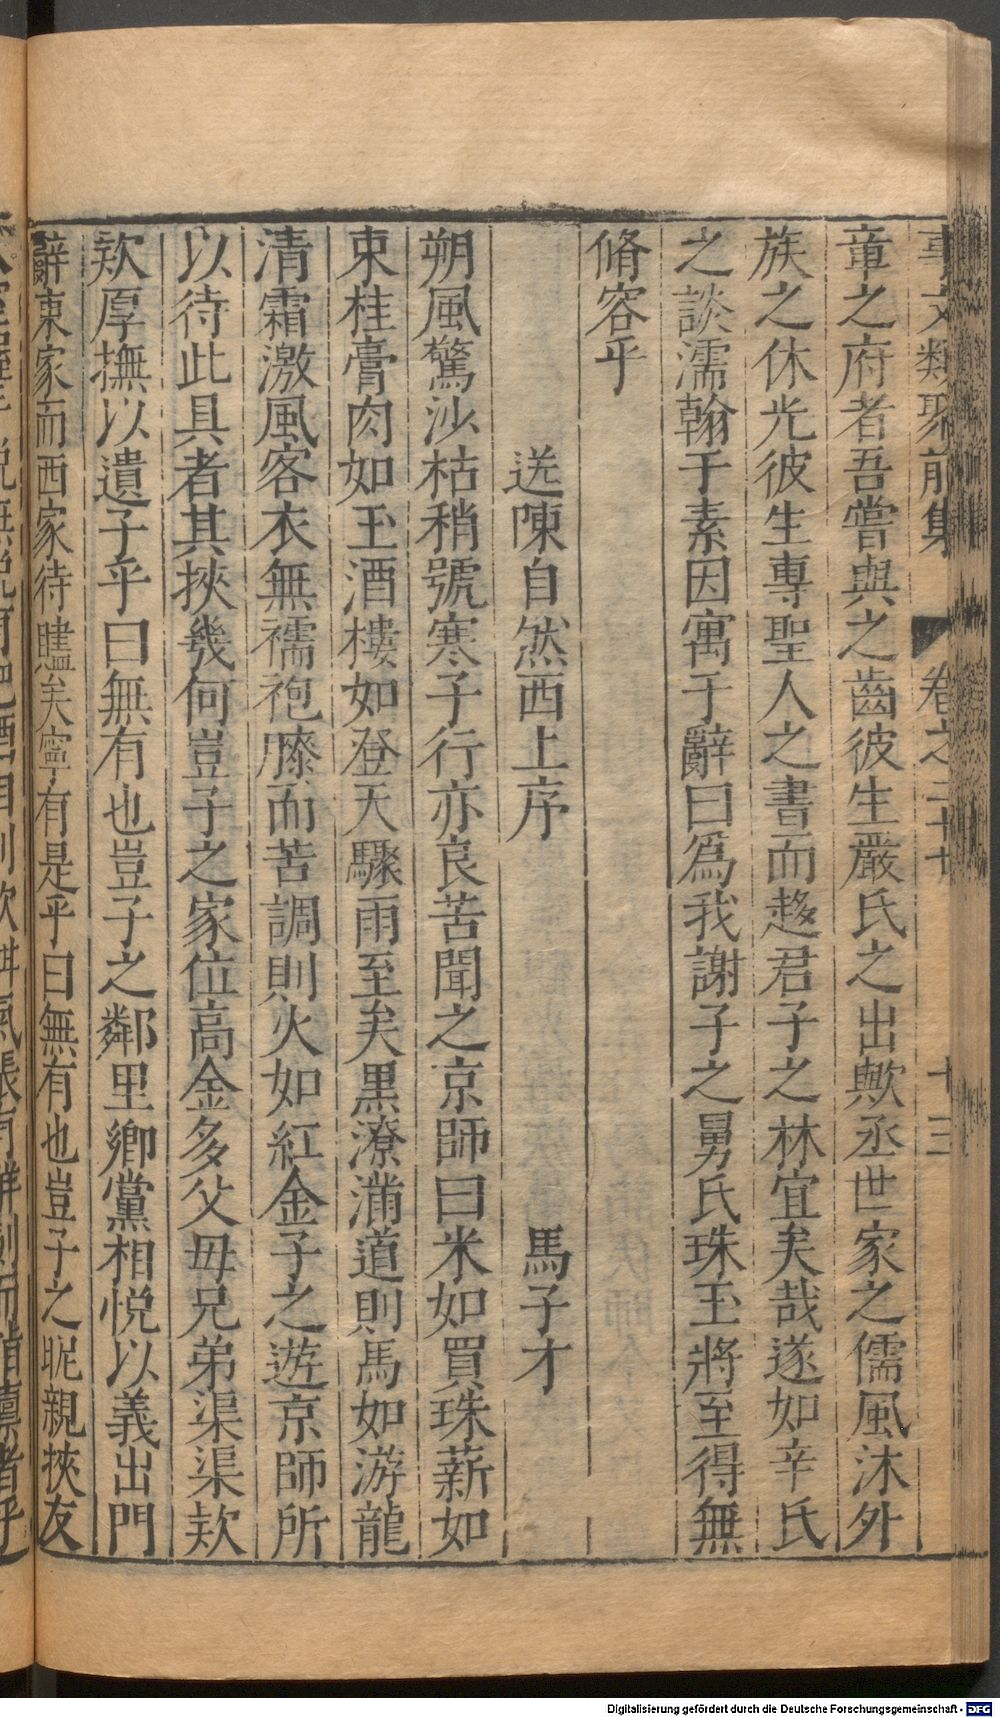 事文類聚前集 卷之二十七 十三
章之府者吾嘗與之齒彼生嚴氏之出歟丞世家之儒風沐外
族之休光彼生專聖人之書而趍君子之林宜矣哉遂如辛氏
之談濡翰于素因寓于辭曰爲我謝子之舅氏珠玉將至得無
脩容乎
送陳自然西上序 馬子才
朔風驚沙枯稍號寒子行亦良苦聞之京師曰米如買珠薪如
束桂膏肉如玉酒樓如登天驟雨至矣黒潦滿道則馬如游龍
清霜激風客衣無襦袍縢而苦調則火如紅金子之遊京師所
以待此具者其挾幾何豈子之家位高金多父毋兄弟渠渠欵
欵厚撫以遺子乎曰無有也豈子之鄰里卿黨相悦以義出門
辭東家而西家待贐矣寧有是乎曰無有也豈子之昵親挾友
Digitalisierung gefördert durch die Deutsche Forschungsgemeinschaft - DFG